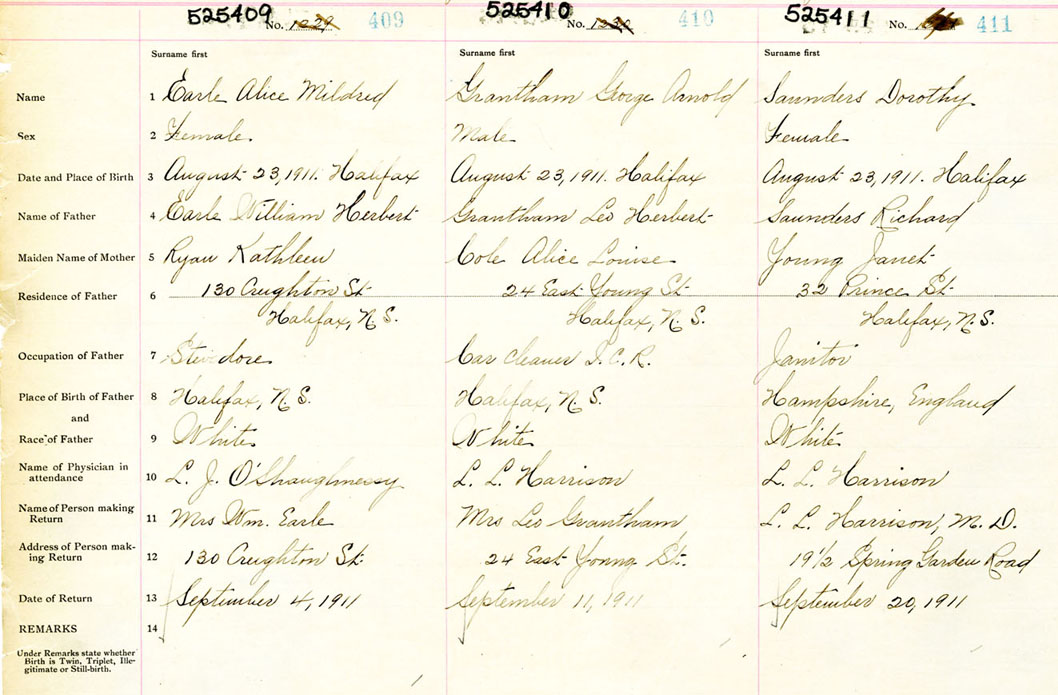 525409 No. 1229 409 525410 No. 1230 410 525411 No. 411
Surname first Surname first Surname first
Name 1 Earle Alice Mildred Grantham George Arnold Saunders Dorothy
Sex 2 Female. Male Female
Date and Place of Birth 3 August 23, 1911. Halifax August 23, 1911. Halifax August 23, 1911. Halifax
Name of Father 4 Earle William Herbert Grantham Leo Herbert Saunders Richard
Maiden Name of Mother 5 Ryan Kathleen Cole Alice Louise Young Janet
Residence of Father 6 130 Creighton St. 24 East Young St. 32 Prince St.
Halifax, N.S. Halifax, N.S. Halifax, N.S.
Occupation of Father 7 Stevedore Car Cleaner I.C.R. Janitor
Place of Birth of Father 8 Halifax, N.S. Halifax, N.S. Hampshire, England
and
Race of Father 9 White White White
Name of Physician in
attendance 10 L. J. O'Shaughnessy L. L. Harrison L. L. Harrison
Name of Person making
Return 11 Mrs Wm. Earle Mrs Leo Grantham L. L. Harrison, M.D.
Address of Person mak-
ing Return 12 130 Creighton St. 24 East Young St. 19 1/2 Spring Garden Road
Date of Return 13 September 4, 1911 September 11, 1911 September 20, 1911
REMARKS 14
Under Remarks state whether
Birth is Twin, Triplet, Ille-
gitimate or Still-birth.